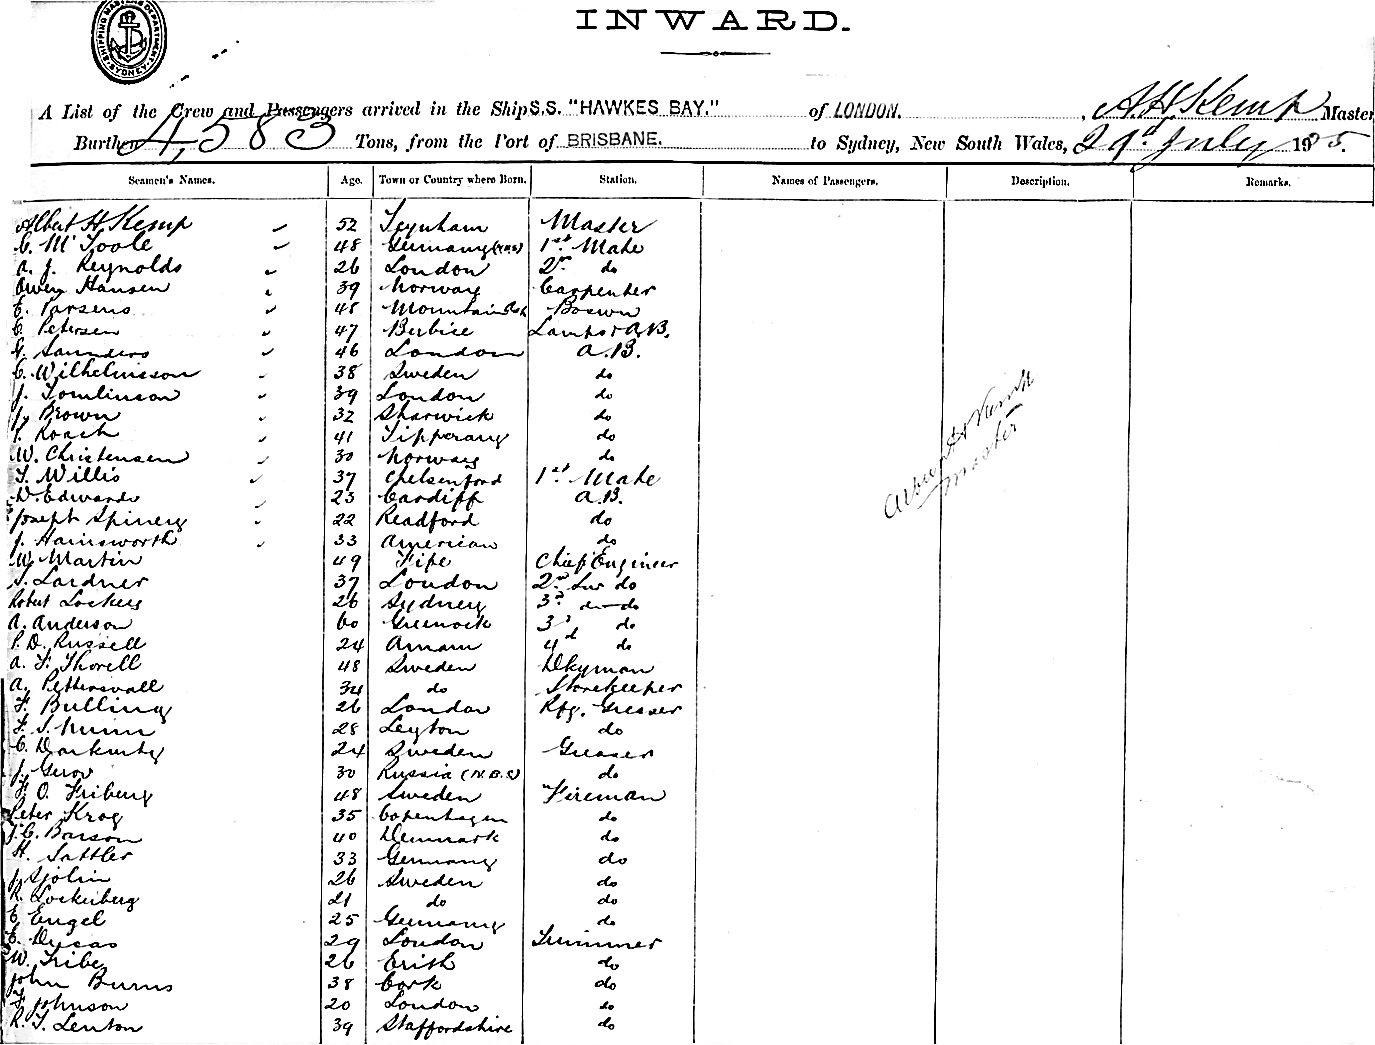 SHIPPING MASTER'S DEPARTMENT SYDNEY
INWARD.
A List of the Crew and Passengers arrived in the Ship S.S. "HAWKES BAY." of LONDON. , A. H. Kemp Master
Burthen 4,583 Tons, from the Port of BRISBANE. to Sydney, New South Wales, 29th July 1905.
Seamen's Names. Age. Town or Country where Born. Station. Names of Passengers. Description. Remarks.
Albert H Kemp 52 Teynham Master
C. McToole 48 Germany 1st Mate
A. J. Reynolds 26 London 2nd do
Owen Hansen 39 Norway Carpenter
E. Parsens 48 Mountain Ash Boswn
C. Petersen 47 Berbice Lamps & A.B.
G. Saunders 46 London A.B.
C. Wilhelmsson 38 Sweden do
J. Tomlinson 39 London do
J. Brown 32 Sharwick do
P. Roach 41 Tipperary do
W. Christensen 30 Norway do
T. Willis 37 Chelsenford 1st Mate
D. Edwards 23 Cardiff A.B.
Joseph Spinery 22 Readford do
J. Hainsworth 33 American do
W. Martin 49 Fife Chief Engineer
S. Lardner 37 London 2nd Snr do
Robert Lockery 26 Sydney 3rd do
A. Anderson 60 Greenock 3rd do
P. D. Russell 24 Annam 4th do
A. F. Thorell 48 Sweden Dkyman
A. Pettersvall 34 do Storekeeper
F. Bulling 26 London Rfg. Greaser
F. S. Nunn 28 Leyton do
C. 24 Sweden Greaser
J. Gerov 30 Russia (N.B.S) do
F. O. Friberg 48 Sweden Fireman
Peter Krog 35 Copenhagen do
J. C. Barson 40 Denmark do
H. Sattler 33 Germany do
J. Sjolin 26 Sweden do
R. Lockerberg 21 do do
E. Engel 25 Germany do
E. Dycas 29 London Trimmer
W. Tribe 26 Erith do
John Burns 38 Cork do
F. Johnson 20 London do
R. T. Lenton 39 Staffordshire do
Master